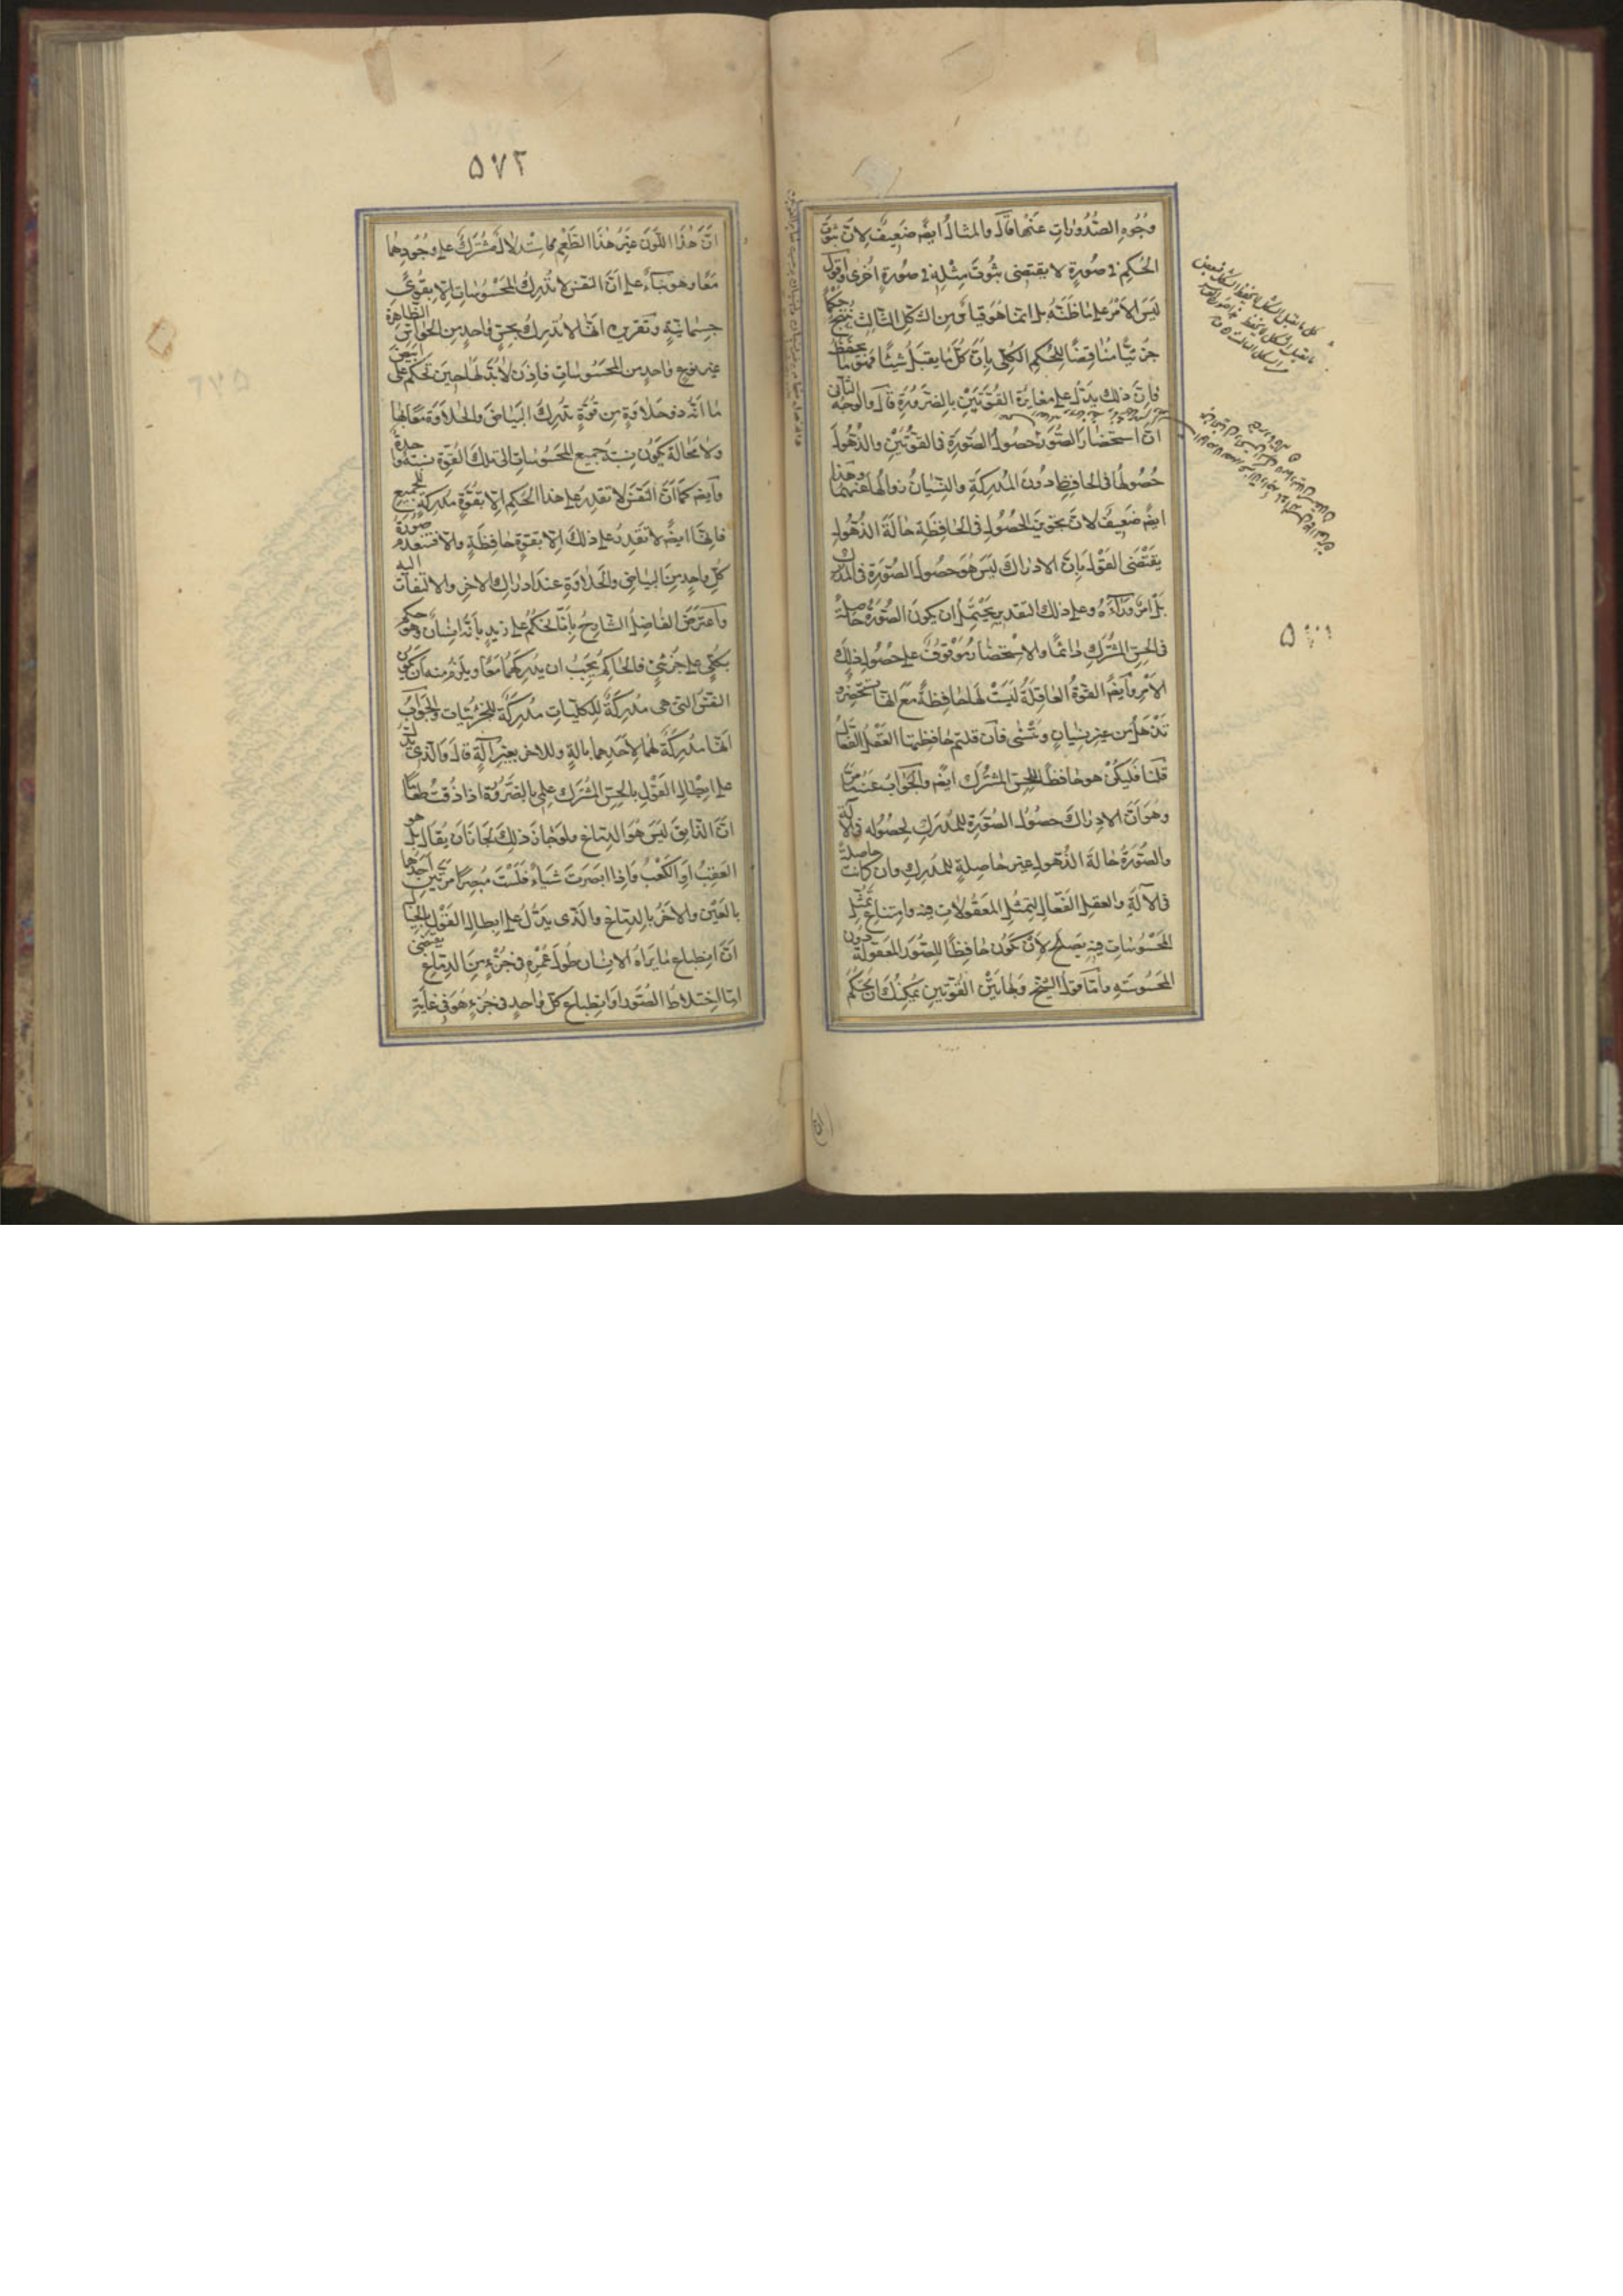 وجوه الصدورات عنها قال والمثال ايضا ضعيف لان ثبوت
الحكم فى صورة لا يقتضى ثبوت مثله فى صورة اخرى اقول
ليس الامر على ما ظنه بل انما هو قياس من الشكل الثالث ينتج حكما
جزئيا مناقضا للحكم الكلى بان كل ما يقبل شيئا فهو ما يحفظه
فان ذلك يدل على مغايرة القوتين بالضرورة قال والوجه الثانى
ان استحضار الصور حصول الصورة فى القوتين والذهول
حصولها فى الحافظ دون المدركة والنسيان زوالها عنهما وهذا
ايضا ضعيف لان تجويز الحصول فى الحافظة حالة الذهول
يقتضى القول بان الادراك ليس هو حصول الصورة فى المدرك
بل امر وراءه وعلى ذلك التقدير يحتمل ان يكون الصورة حاصلة
فى الحس المشترك دائما والاستحضار موقوف على حصول ذلك
الامر وايضا القوة العاقلة ليست لها حافظة مع انها تستحضر و
تذهل من غير نسيان وتنسى فان قلتم حافظتها العقل الفعال
قلنا فليكن هو حافظا للحس المشترك ايضا والجواب عنه ما مر
وهو ان الادراك حصول الصورة للمدرك لحصوله فى الآلة
والصورة حالة الذهول غير حاصلة للمدرك وان كانت حاصلة
فى الآلة والعقل الفعال لتمثل المعقولات فيه وامتناع تمثل
المحسوسات فيه يصلح لان تكون حافظا للصور المعقولة دون
المحسوسة واما قول الشيخ وبهاتين القوتين يمكنك ان تحكم
٥٧٢
ان هذا اللون غير هذا الطعم فاستدلال مشترك على وجودهما
معا وهو بناء على ان النفس لا تدرك المحسوسات الا بقوى
جسمانية وتقريره انها لا تدرك بحس واحد من الحواس الظاهرة
غير نوع واحد من المحسوسات فاذن لا بد لها حين تحكم على ابيض
ما انه ذو حلاوة من قوة تدرك البياض والحلاوة معا بها
ولا محالة يكون نسبة جميع المحسوسات الى تلك القوة نسبة واحدة
وايضا كما ان النفس لا تقدر على هذا الحكم الا بقوة مدركة للجميع
فانها ايضا لا تقدر على ذلك الا بقوة حافظة والا فتنعدم صورة
كل واحد من البياض والحلاوة عند ادراك الاخر والالتفات اليه
واعترض الفاضل الشارح بانا نحكم على زيد بانه انسان وهو حكم
بكلى على جزئى فالحاكم يجب ان يدركهما معا ويلزم منه ان يكون
النفس التى هى مدركة للكليات مدركة للجزئيات والجواب
انها مدركة لهما لاحدهما بآلة وللاخر بغير آلة قال والذى يدل
على ابطال القول بالحس المشترك علمى بالضرورة اذا ذقت طعاما
ان الذايق ليس هو الدماغ ولو جاز ذلك لجاز ان يقال بل هو
العقب او الكعب واذا ابصرت شيئا فلست مبصرا مرتين احدهما
بالعين والاخر بالدماغ والذى يدل على ابطال القول بالخيال
ان انطباع ما يراه الانسان طول عمره فى جزء من الدماغ يقتضى
اما اختلاط الصور او انطباع كل واحد فى جزء هو فى غاية